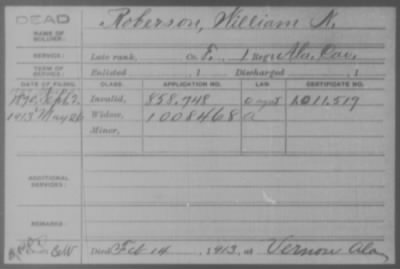 DEAD
NAME OF SOLDIER: Roberson, William N.
SERVICE: Late rank, Co. F, 1 Reg't Ala. Cav.
TERM OF SERVICE: Enlisted , 1 Discharged , 1
DATE OF FILING. CLASS. APPLICATION NO. LAW. CERTIFICATE NO.
1890, Sept 2. Invalid, 858,748 1011,517
1913 May 26 Widow, 1008468 a
Minor,
ADDITIONAL SERVICES:
REMARKS:
Died Feb 14, 1913, at Vernon Ala